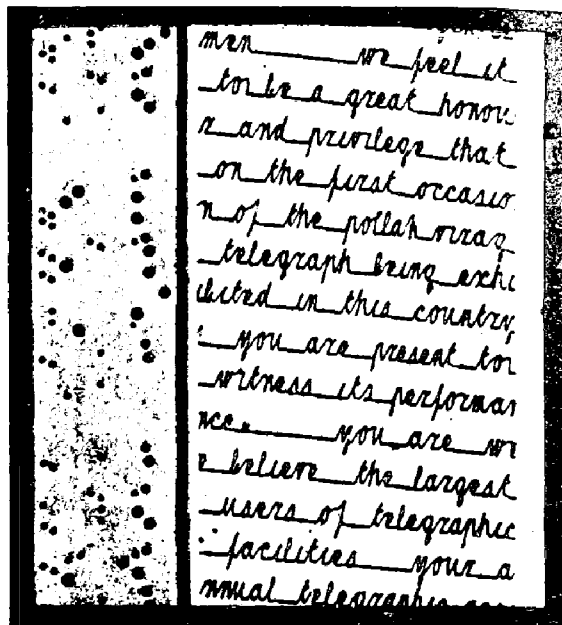 men we feel it
to be a great honou
r and privilege that
on the first occasio
n of the pollak virag
telegraph being exhi
bited in this country
you are present to
witness its performa
nce. you are w
e believe the largest
users of telegraphic
facilities your a
nnual telegraphic